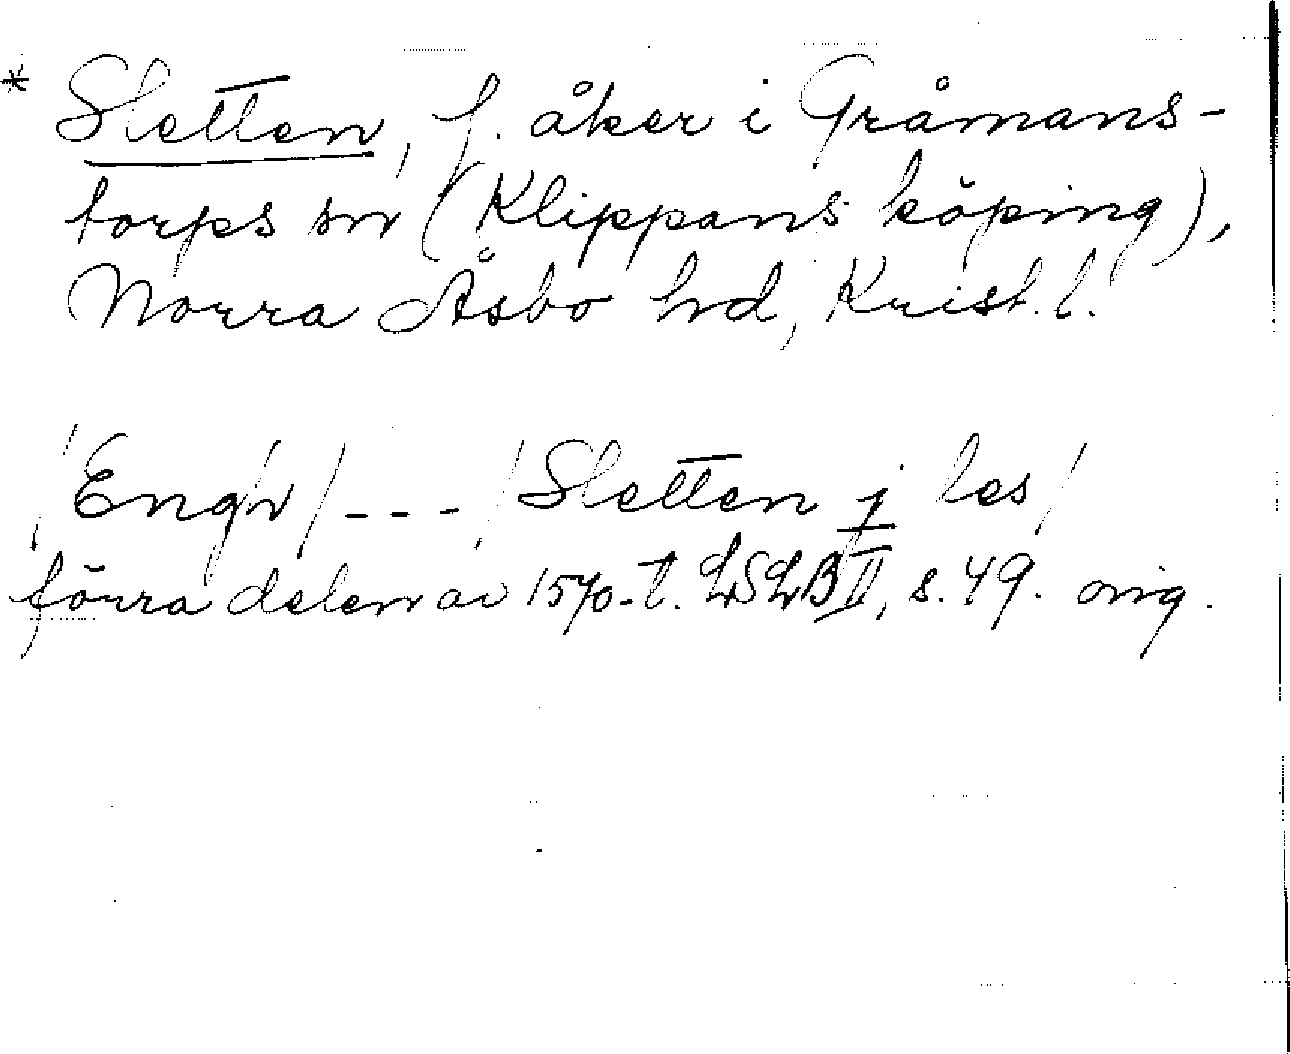 * Sletten, f. åker i Gråmans-
torps sn (Klippans köping),
Norra Åsbo hd, Krist. l.
/Engh/ - - - /Sletten j les/
förra delen av 1570-t. LSLB II, s. 49. orig.